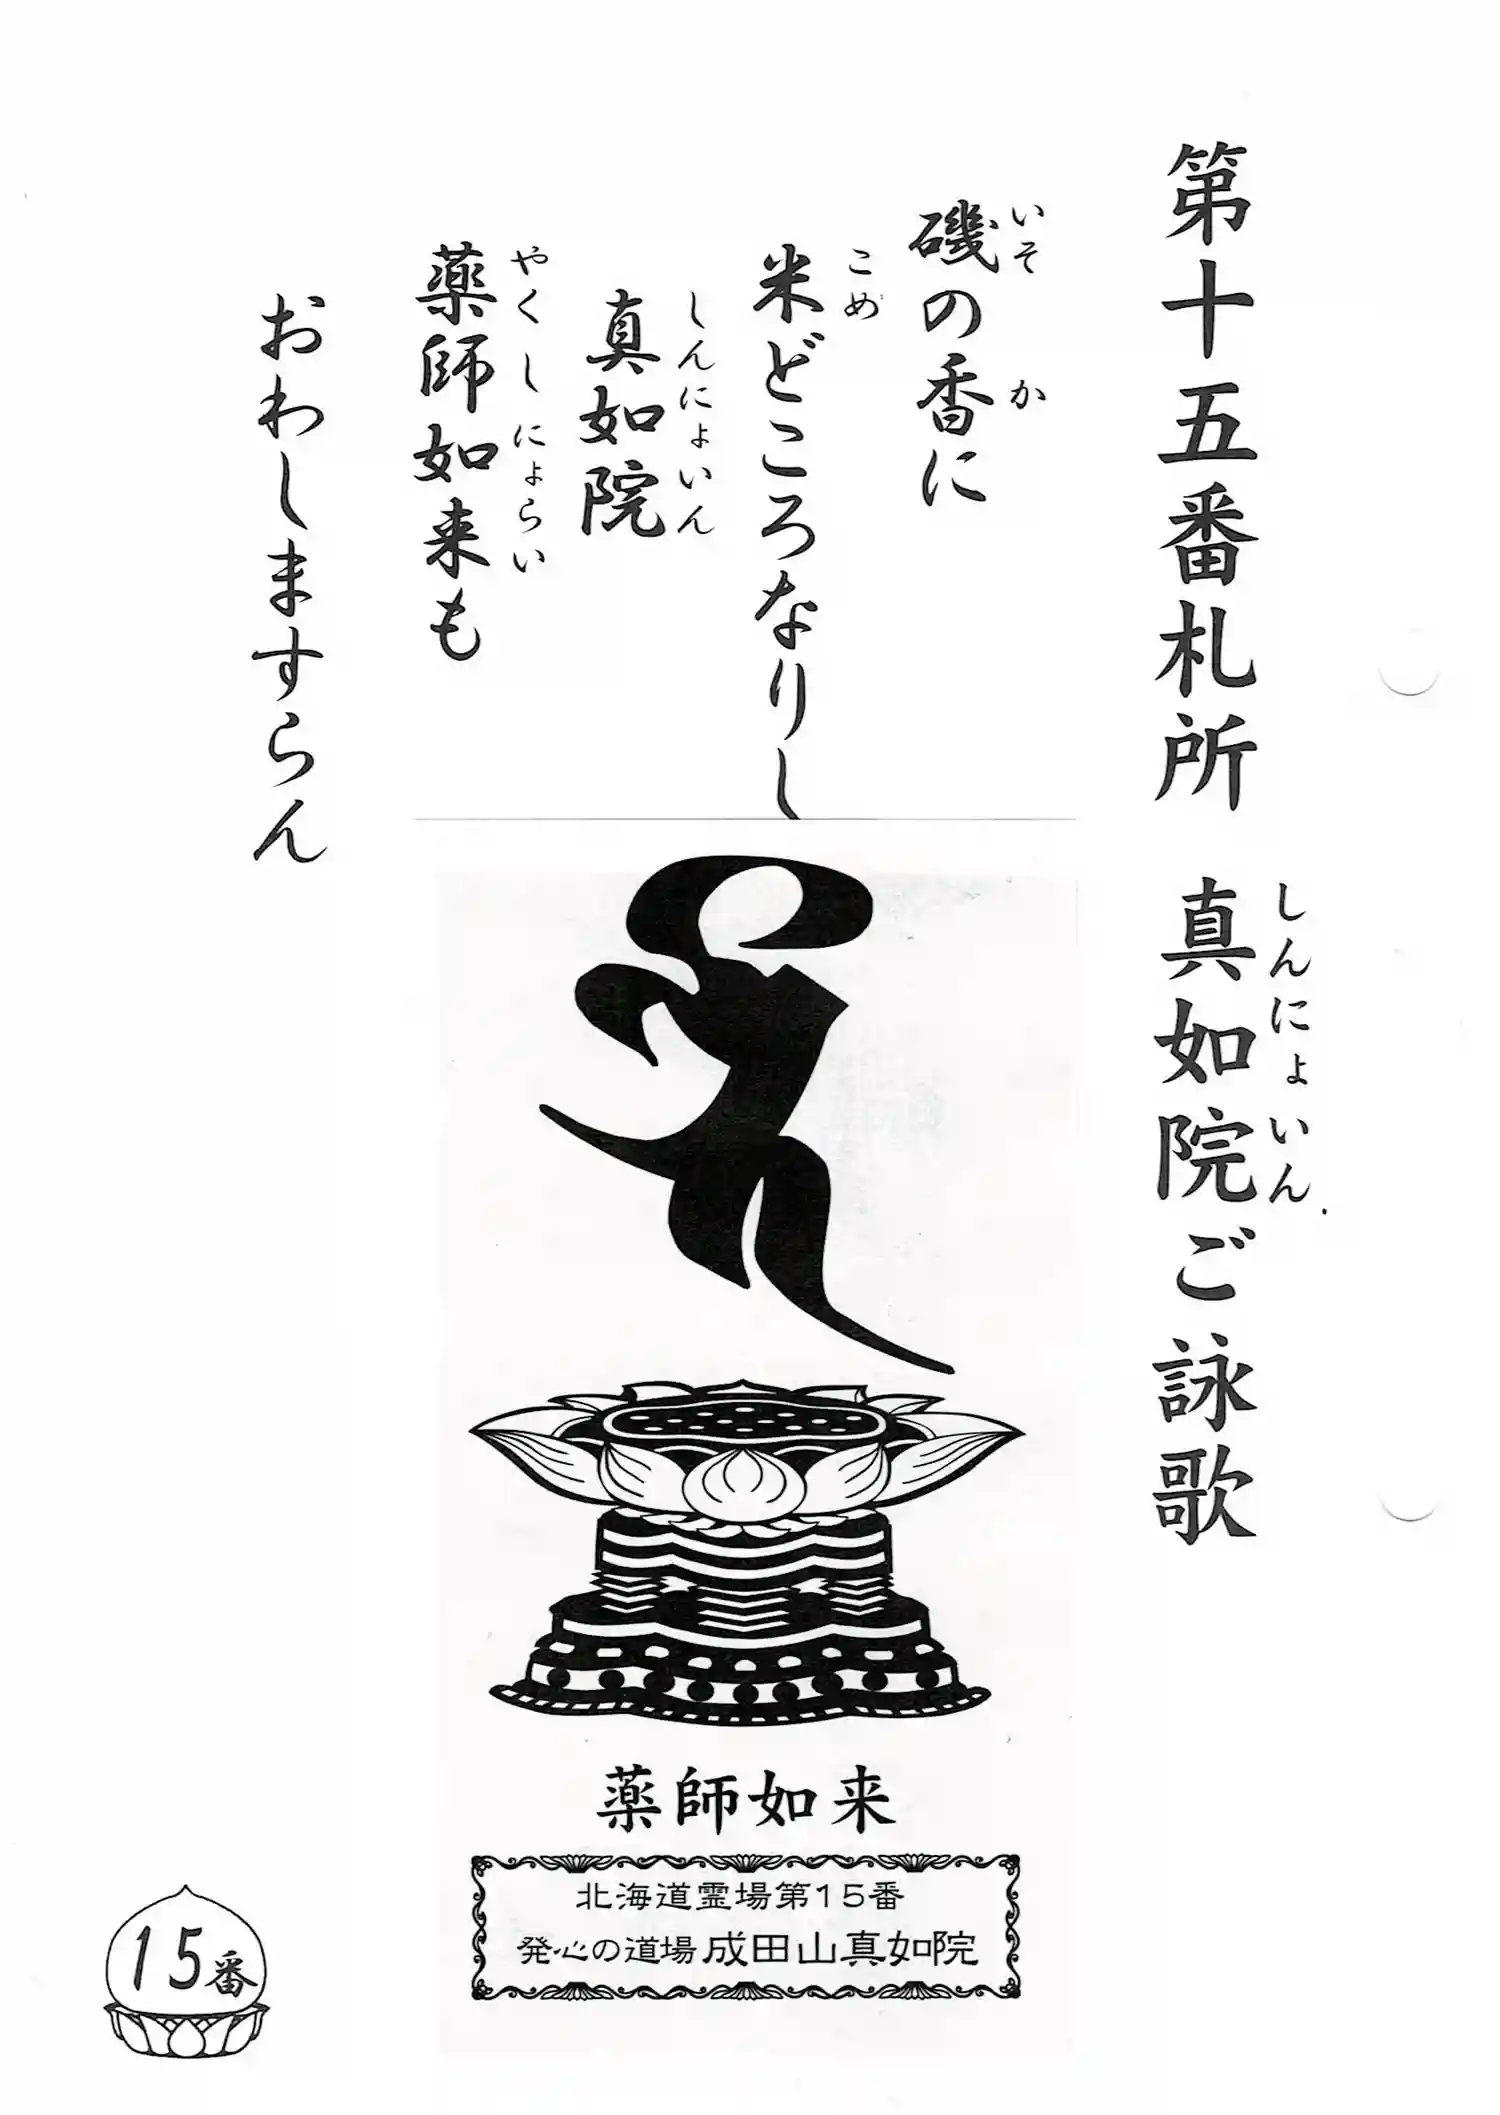 第十五番札所 真如院ご詠歌
しんにょいん
磯の香に
いそ か
米どころなりし
こめ
真如院
しんにょいん
薬師如来も
やくしにょらい
おわしますらん
薬師如来
北海道霊場第15番
発心の道場 成田山真如院
15番